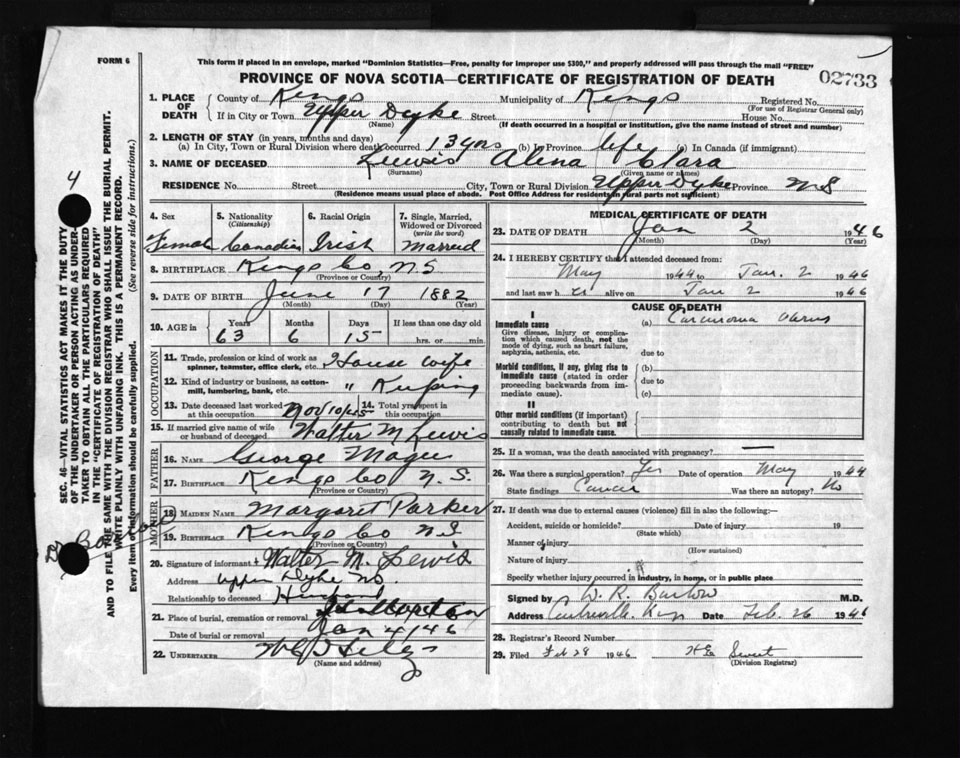 FORM 6
This form if placed in an envelope, marked "Dominion Statistics—Free, penalty for improper use $300," and properly addressed will pass through the mail "FREE"
PROVINCE OF NOVA SCOTIA—CERTIFICATE OF REGISTRATION OF DEATH
02733
1. PLACE OF DEATH County of Kings Municipality of Kings Registered No.
(For use of Registrar General only)
If in City or Town Upper Dyke Street House No.
(Name) (If death occurred in a hospital or institution, give the name instead of street and number)
2. LENGTH OF STAY (in years, months and days)
(a) In City, Town or Rural Division where death occurred 13 yrs (b) In Province life (c) In Canada (if immigrant)
3. NAME OF DECEASED Lewis Alena Clara
(Surname) (Given name or names)
RESIDENCE No. Street City, Town or Rural Division Upper Dyke Province N S
(Residence means usual place of abode. Post Office Address for residents in rural parts not sufficient)
4. Sex Female
5. Nationality (Citizenship) Canadian
6. Racial Origin Irish
7. Single, Married, Widowed or Divorced (write the word) Married
8. BIRTHPLACE Kings Co N S
(Province or Country)
9. DATE OF BIRTH June 17 1882
(Month) (Day) (Year)
10. AGE in Years Months Days If less than one day old
63 6 15 hrs. or min.
OCCUPATION
11. Trade, profession or kind of work as spinner, teamster, office clerk, etc. House wife
12. Kind of industry or business, as cotton-mill, lumbering, bank, etc. " Keeping
13. Date deceased last worked at this occupation Nov 10/45
14. Total yrs spent in this occupation
15. If married give name of wife or husband of deceased Walter M Lewis
FATHER
16. NAME George Magee
17. BIRTHPLACE Kings Co N.S.
(Province or Country)
MOTHER
18. MAIDEN NAME Margaret Parker
19. BIRTHPLACE Kings Co N S
(Province or Country)
20. Signature of informant Walter M. Lewis
Address Upper Dyke NS.
Relationship to deceased Husband
21. Place of burial, cremation or removal
Date of burial or removal Jan 4/46
22. UNDERTAKER
(Name and address)
MEDICAL CERTIFICATE OF DEATH
23. DATE OF DEATH Jan 2 1946
(Month) (Day) (Year)
24. I HEREBY CERTIFY that I attended deceased from:
May 1944 to Jan. 2 1946
and last saw h er alive on Jan 2 1946
CAUSE OF DEATH
I
Immediate cause (a) Carcinoma
Give disease, injury or complication which caused death, not the mode of dying, such as heart failure, asphyxia, asthenia, etc.
due to
Morbid conditions, if any, giving rise to immediate cause (stated in order proceeding backwards from immediate cause).
(b)
due to
(c)
II
Other morbid conditions (if important) contributing to death but not causally related to immediate cause.
25. If a woman, was the death associated with pregnancy? —
26. Was there a surgical operation? Yes Date of operation May 1944
State findings Cancer Was there an autopsy? No
27. If death was due to external causes (violence) fill in also the following:—
Accident, suicide or homicide? Date of injury 19
(State which)
Manner of injury
(How sustained)
Nature of injury
Specify whether injury occurred in industry, in home, or in public place
Signed by W. R. Barlow M.D.
Address Centreville, Kings Date Feb. 26 1946
28. Registrar's Record Number
29. Filed Feb 28 1946 Sweet
(Division Registrar)
SEC. 46—VITAL STATISTICS ACT MAKES IT THE DUTY
OF THE UNDERTAKER OR PERSON ACTING AS UNDERTAKER TO OBTAIN ALL THE PARTICULARS REQUIRED
IN THE "CERTIFICATE OF REGISTRATION OF DEATH" AND TO FILE THE SAME WITH THE DIVISION REGISTRAR WHO SHALL ISSUE THE BURIAL PERMIT.
WRITE PLAINLY WITH UNFADING INK. THIS IS A PERMANENT RECORD.
Every item of information should be carefully supplied. (See reverse side for instructions.)
4